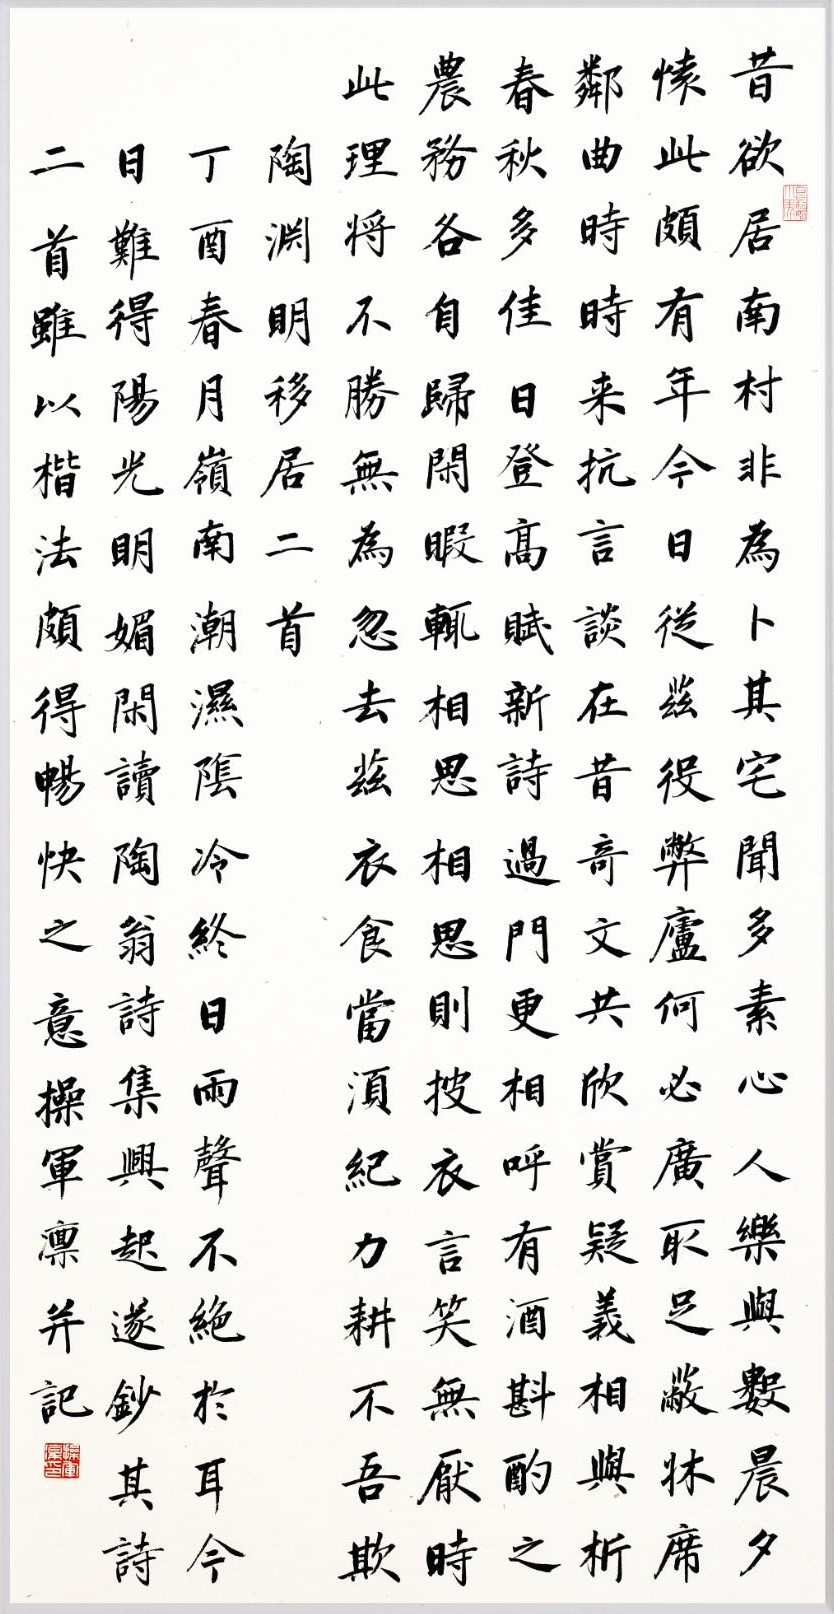 昔欲居南村非為卜其宅聞多素心人樂與數晨夕
懐此頗有年今日從茲役弊廬何必廣取足蔽牀席
鄰曲時時来抗言談在昔奇文共欣賞疑義相與析
春秋多佳日登高賦新詩過門更相呼有酒斟酌之
農務各自歸閑暇輒相思相思則披衣言笑無厭時
此理将不勝無為忽去茲衣食當須紀力耕不吾欺
陶淵明移居二首
丁酉春月嶺南潮濕陰冷終日雨聲不絶於耳今
日難得陽光明媚閑讀陶翁詩集興起遂鈔其詩
二首雖以楷法頗得暢快之意操軍凛并記